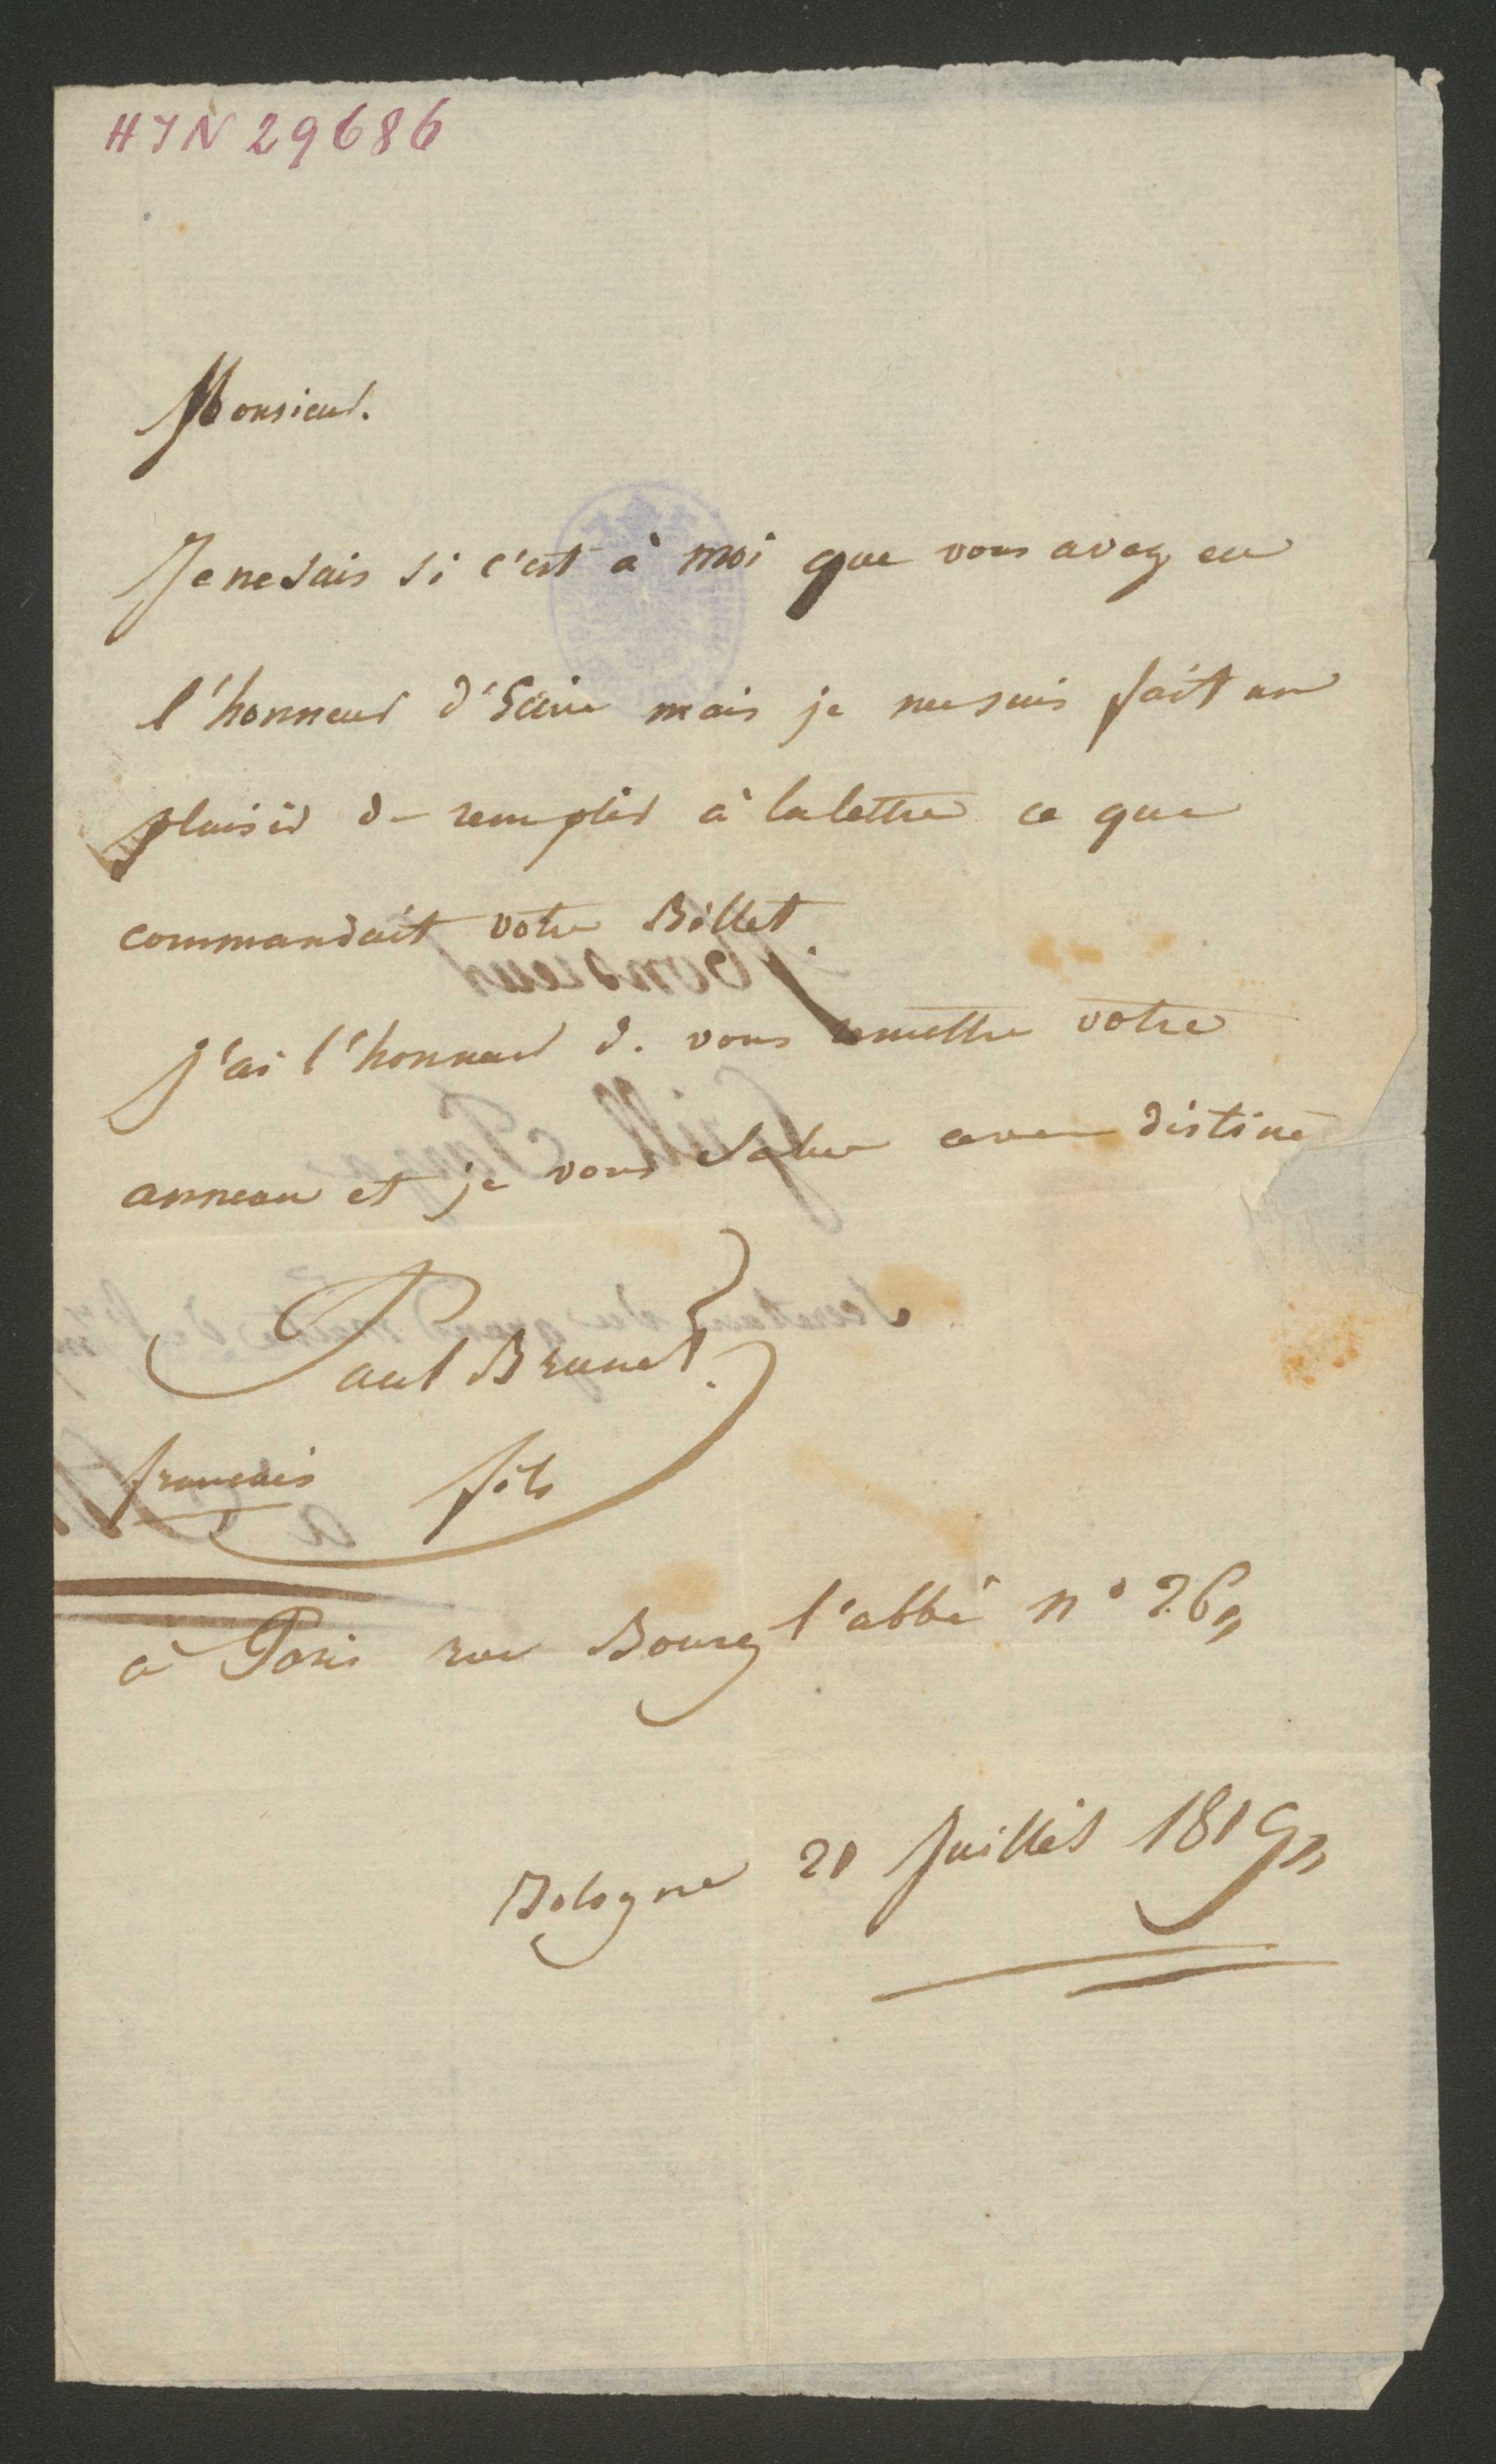 HIN 29686
Monsieur.
Je ne sais si c'est à moi que vous avez eu
l'honneur d'Ecrire mais je me suis fait un
plaisir de remplir à la lettre ce que
commandait votre Billet.
j'ai l'honneur d. vous remettre votre
anneau et je vous Salue avec distinc
Paul Brunet.
français fils
à Paris rue Bourg l'abbé n° 26
Bologne 21 Juillet 1819